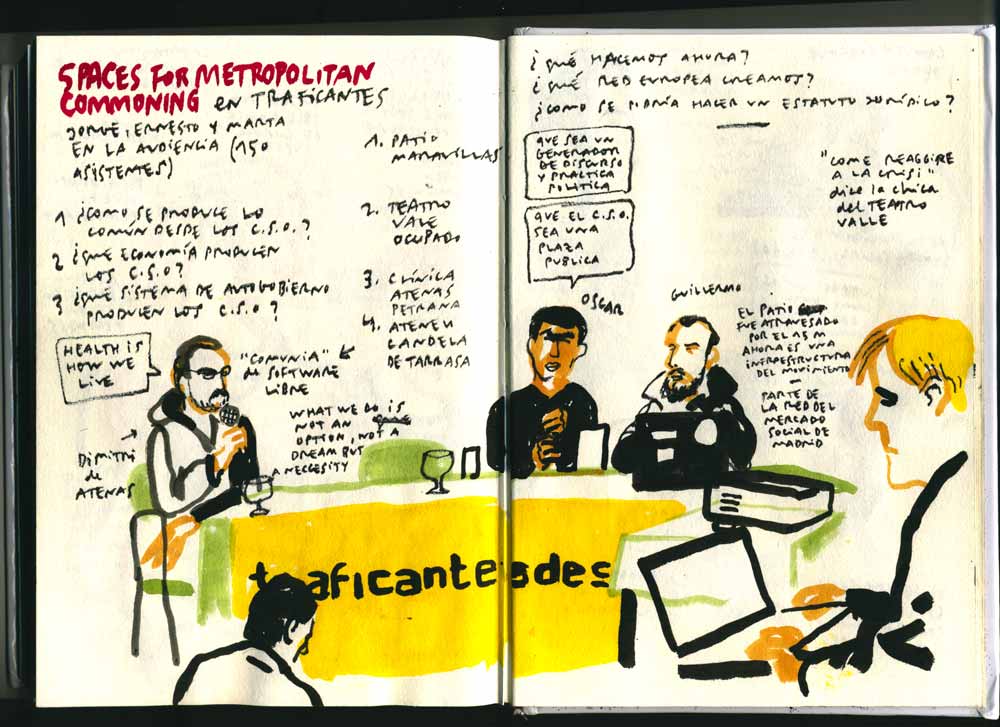 SPACES FOR METROPOLITAN
COMMONING en TRAFICANTES
JORGE, ERNESTO Y MARTA
EN LA AUDIENCIA (150
ASISTENTES)
1 ¿COMO SE PRODUCE LO
COMÚN DESDE LOS C.S.O.?
2 ¿QUE ECONOMÍA PRODUCEN
LOS C.S.O?
3 ¿QUÉ SISTEMA DE AUTOGOBIERNO
PRODUCEN LOS C.S.O?
1. PATIO
MARAVILLAS
2. TEATRO
VALE
OCUPADO
3. CLÍNICA
ATENAS
PETRANA
4. ATENEU
CANDELA
DE TARRASA
HEALTH IS
HOW WE
LIVE
"COMUNIA"
de SOFTWARE
LIBRE
WHAT WE DO IS
NOT AN
OPTION, NOT A
DREAM BUT
A NECESITY
DIMITRI
de
ATENAS
¿QUÉ HACEMOS AHORA?
¿QUÉ RED EUROPEA CREAMOS?
¿COMO SE PODRÍA HACER UN ESTATUTO JURÍDICO?
QUE SEA UN
GENERADOR
DE DISCURSO
Y PRÁCTICA
POLÍTICA
QUE EL C.S.O.
SEA UNA
PLAZA
PUBLICA
"COME REAGGIRE
A LA CRISI"
dice la chica
del TEATRO
VALLE
OSCAR
GUILLERMO
EL PATIO
FUE ATRAVESADO
POR EL 15 M
AHORA ES UNA
INFRAESTRUCTURA
DEL MOVIMIENTO
PARTE DE
LA RED DEL
MERCADO
SOCIAL DE
MADRID
traficantesdes